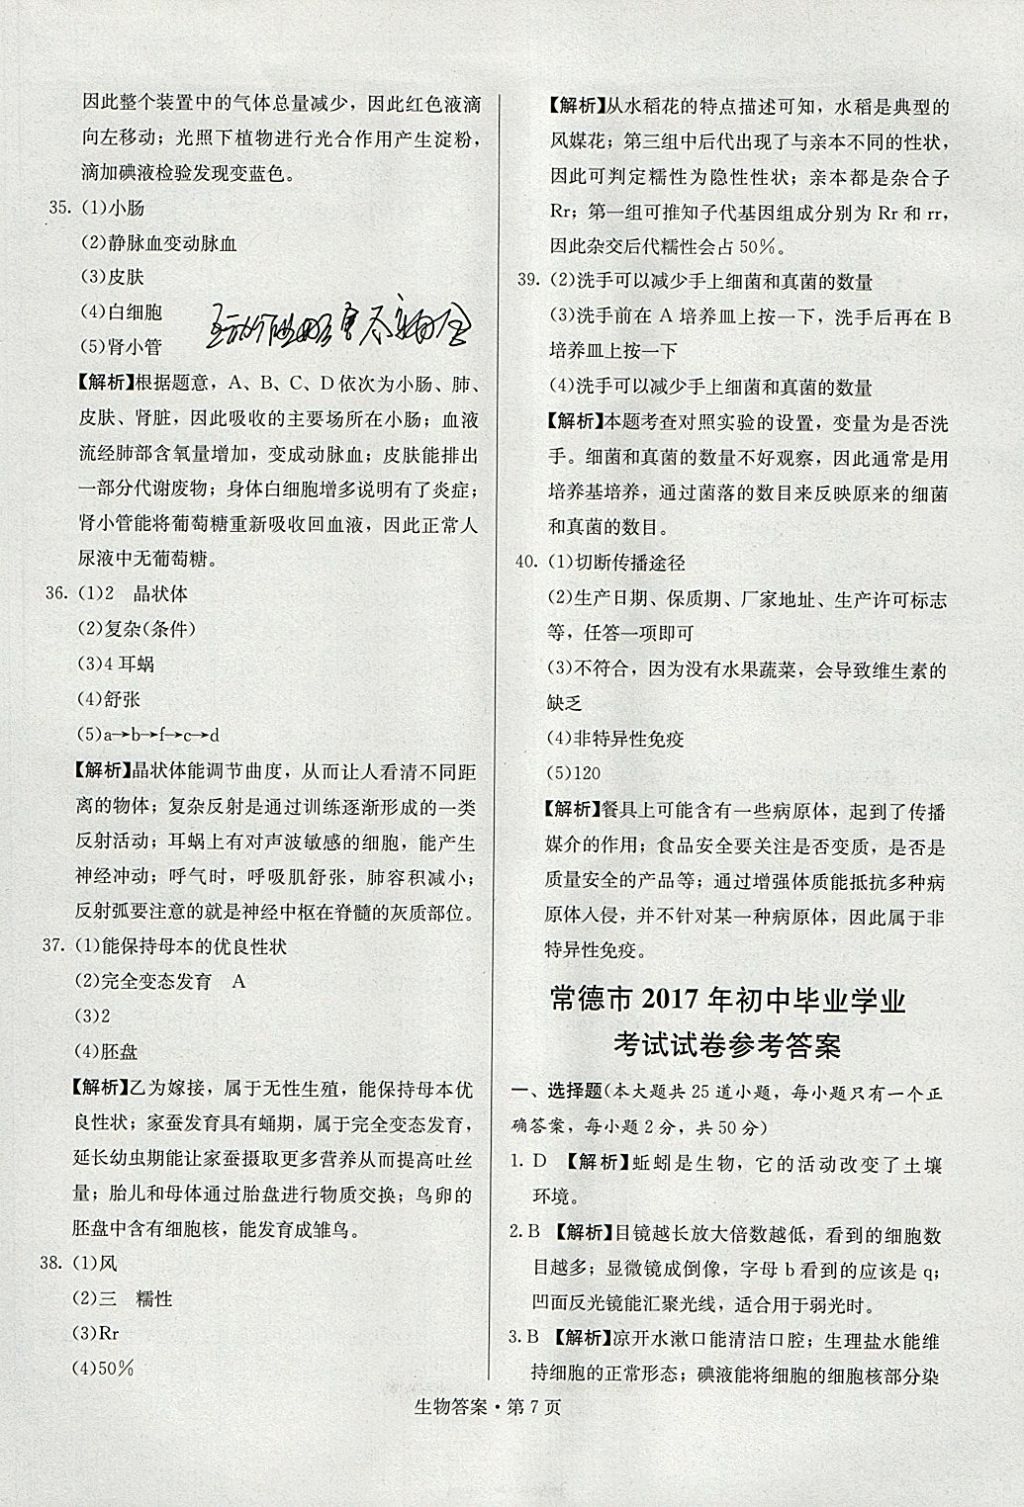 因此整个装置中的气体总量减少，因此红色液滴
向左移动；光照下植物进行光合作用产生淀粉，
滴加碘液检验发现变蓝色。
35. (1)小肠
(2)静脉血变动脉血
(3)皮肤
(4)白细胞
(5)肾小管
【解析】根据题意，A、B、C、D依次为小肠、肺、
皮肤、肾脏，因此吸收的主要场所在小肠；血液
流经肺部含氧量增加，变成动脉血；皮肤能排出
一部分代谢废物；身体白细胞增多说明有了炎症；
肾小管能将葡萄糖重新吸收回血液，因此正常人
尿液中无葡萄糖。
36. (1)2　晶状体
(2)复杂(条件)
(3)4 耳蜗
(4)舒张
(5)a→b→f→c→d
【解析】晶状体能调节曲度，从而让人看清不同距
离的物体；复杂反射是通过训练逐渐形成的一类
反射活动；耳蜗上有对声波敏感的细胞，能产生
神经冲动；呼气时，呼吸肌舒张，肺容积减小；
反射弧要注意的就是神经中枢在脊髓的灰质部位。
37. (1)能保持母本的优良性状
(2)完全变态发育　A
(3)2
(4)胚盘
【解析】乙为嫁接，属于无性生殖，能保持母本优
良性状；家蚕发育具有蛹期，属于完全变态发育，
延长幼虫期能让家蚕摄取更多营养从而提高吐丝
量；胎儿和母体通过胎盘进行物质交换；鸟卵的
胚盘中含有细胞核，能发育成雏鸟。
38. (1)风
(2)三　糯性
(3)Rr
(4)50%
【解析】从水稻花的特点描述可知，水稻是典型的
风媒花；第三组中后代出现了与亲本不同的性状，
因此可判定糯性为隐性性状；亲本都是杂合子
Rr；第一组可推知子代基因组成分别为 Rr 和 rr，
因此杂交后代糯性会占 50%。
39. (2)洗手可以减少手上细菌和真菌的数量
(3)洗手前在 A 培养皿上按一下，洗手后再在 B
培养皿上按一下
(4)洗手可以减少手上细菌和真菌的数量
【解析】本题考查对照实验的设置，变量为是否洗
手。细菌和真菌的数量不好观察，因此通常是用
培养基培养，通过菌落的数目来反映原来的细菌
和真菌的数目。
40. (1)切断传播途径
(2)生产日期、保质期、厂家地址、生产许可标志
等，任答一项即可
(3)不符合，因为没有水果蔬菜，会导致维生素的
缺乏
(4)非特异性免疫
(5)120
【解析】餐具上可能含有一些病原体，起到了传播
媒介的作用；食品安全要关注是否变质，是否是
质量安全的产品等；通过增强体质能抵抗多种病
原体入侵，并不针对某一种病原体，因此属于非
特异性免疫。
常德市 2017 年初中毕业学业
考试试卷参考答案
一、选择题(本大题共 25 道小题，每小题只有一个正
确答案，每小题 2 分，共 50 分)
1. D 【解析】蚯蚓是生物，它的活动改变了土壤
环境。
2. B 【解析】目镜越长放大倍数越低，看到的细胞数
目越多；显微镜成倒像，字母 b 看到的应该是 q；
凹面反光镜能汇聚光线，适合用于弱光时。
3. B 【解析】凉开水漱口能清洁口腔；生理盐水能维
持细胞的正常形态；碘液能将细胞的细胞核部分染
生物答案·第 7 页